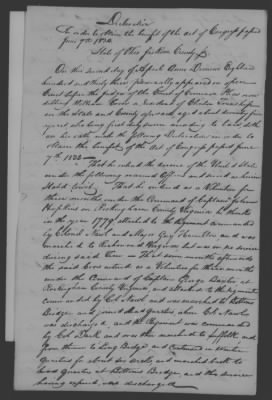 Declaration
In order to obtain the benefit of the act of Congress passed
June 7th 1832
State of Ohio Jackson County Ss
On this second day of April Anno Domini Eighteen
hundred and thirty three personally appeared in open
Court before the Judges of the Court of Common Pleas now
sitting William Cook a resident of Clinton Township
in the State and County aforesaid aged about seventy four
years who being first duly sworn according to law doth
on his oath make the following Declaration in order to
obtain the benefit of the Act of Congress passed June
7th 1832
That he entered the service of the United States
under the following named officers and served as herein
stated towit. That he entered as a Volunteer for
three months under the Command of Captain John
Hopkins in Rockingham County Virginia he thinks
in the year 1779 attached to the regiment commanded
by Colonel Nawl and Major Guy Hamilton and was
marched to Richmond Virginia but was in no service
during said time. That some months afterwards
the said Cook entered as a Volunteer for three months
under the Command of Captain George Baxter at
Rockingham County Virginia, and attached to the regiment
commanded by Col Nawl and was marched to
Bridge and joined Head Quarters when Col Nawl
was discharged and the Regiment was commanded
by Col Dark and was then marched to Suffolk and
from thence to Long Bridge and continued in
Quarters for about six weeks, and marched back to
head Quarters at Bridge, and his service
having expired was discharged